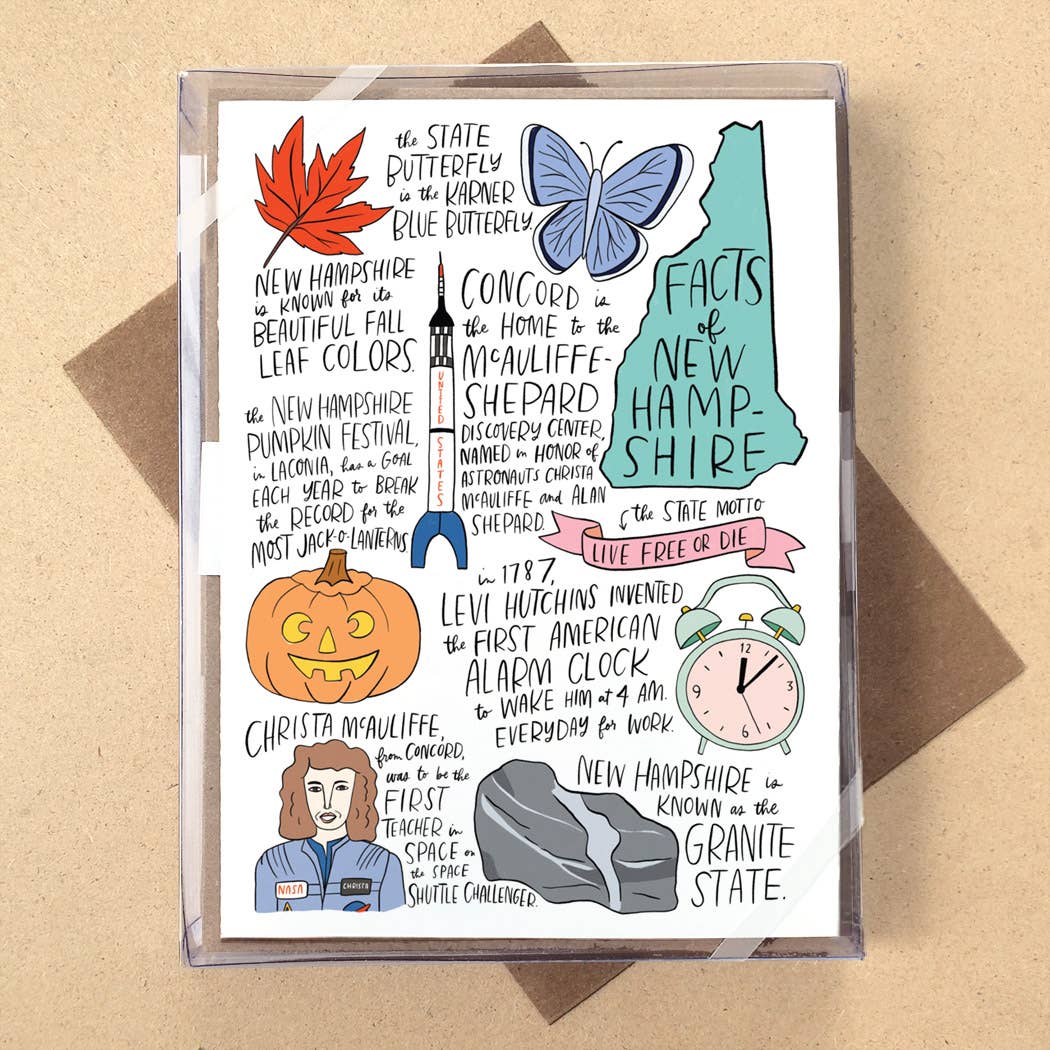 the STATE
BUTTERFLY
is the KARNER
BLUE BUTTERFLY.
FACTS
of
NEW
HAMP-
SHIRE
NEW HAMPSHIRE
is KNOWN for its
BEAUTIFUL FALL
LEAF COLORS.
UNITED STATES
CONCORD is
the HOME to the
McAULIFFE-
SHEPARD
DISCOVERY CENTER,
NAMED in HONOR of
ASTRONAUTS CHRISTA
McAULIFFE and ALAN
SHEPARD.
the NEW HAMPSHIRE
PUMPKIN FESTIVAL,
in LACONIA, has a GOAL
EACH YEAR to BREAK
the RECORD for the
MOST JACK-O-LANTERNS.
the STATE MOTTO
LIVE FREE OR DIE
in 1787,
LEVI HUTCHINS INVENTED
the FIRST AMERICAN
ALARM CLOCK
to WAKE HIM at 4 AM.
EVERYDAY for WORK.
12
3
6
9
CHRISTA McAULIFFE,
from CONCORD,
was to be the
FIRST
TEACHER in
SPACE on
the SPACE
SHUTTLE CHALLENGER.
NASA
CHRISTA
NEW HAMPSHIRE is
KNOWN as the
GRANITE
STATE.